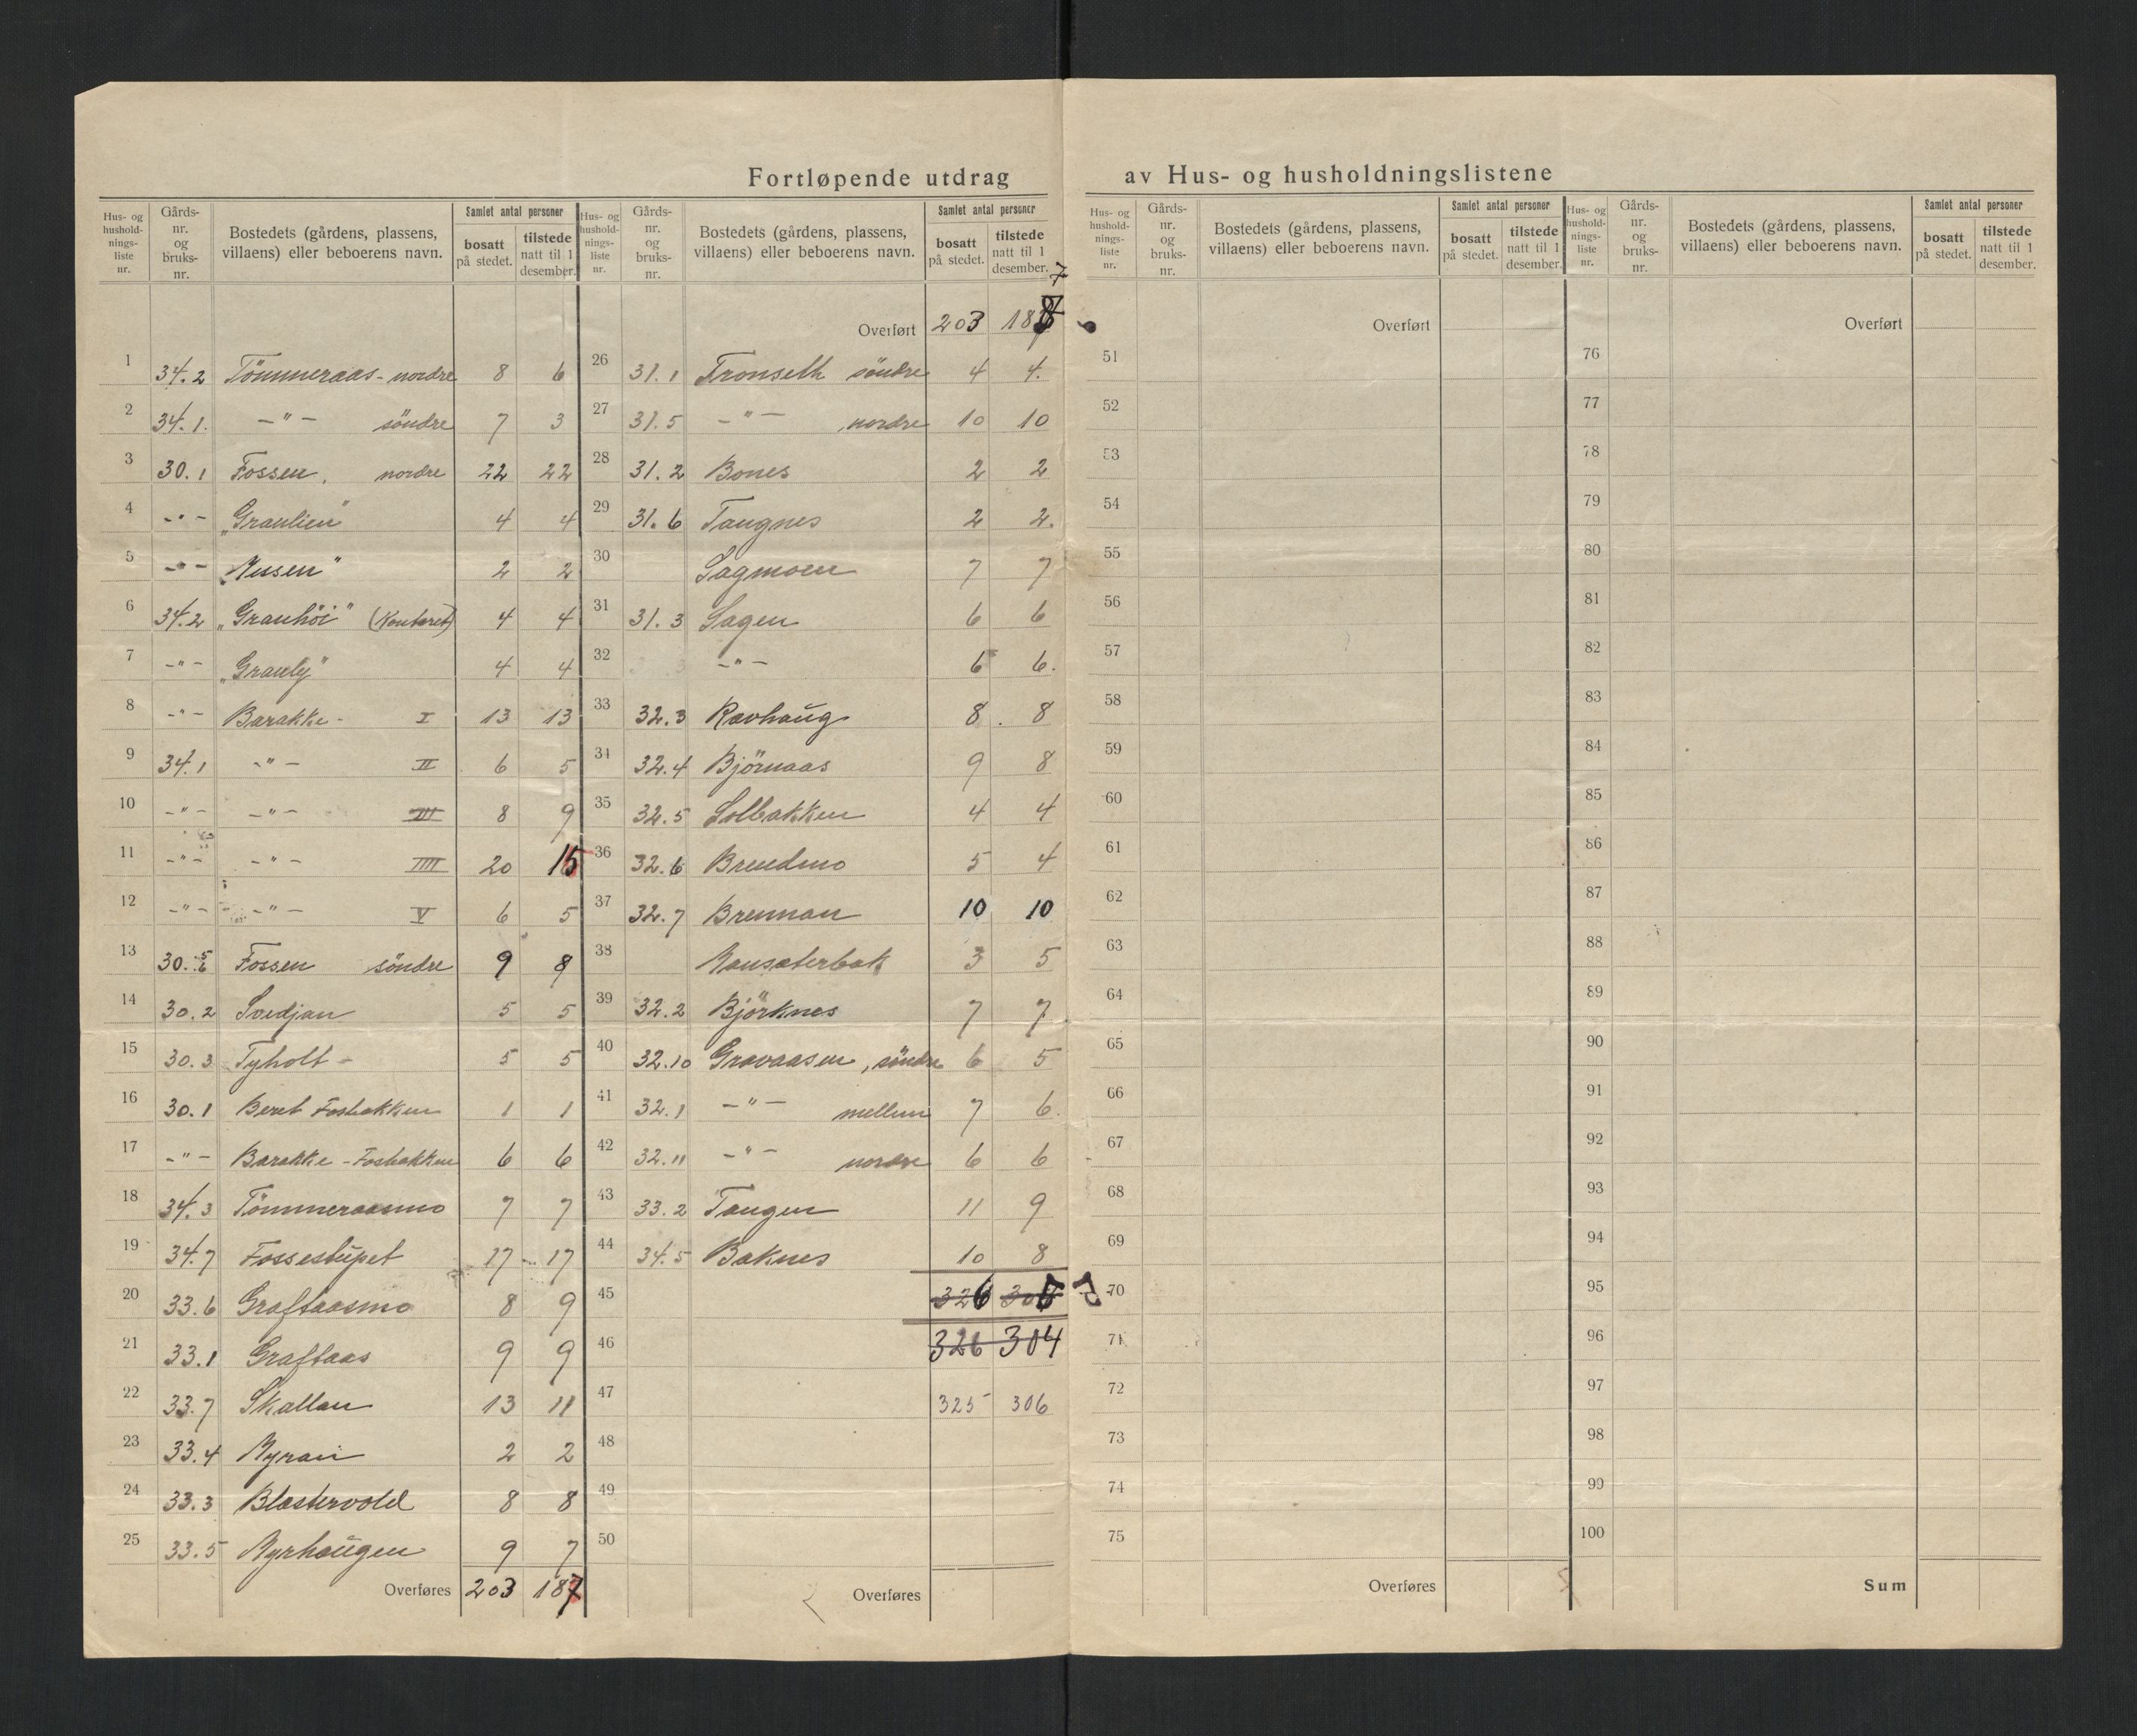 Fortløpende utdrag av Hus- og husholdningslistene
Hus- og hushold-nings-liste nr. Gårds-nr. og bruks-nr. Bostedets (gårdens, plassens, villaens) eller beboerens navn. Samlet antal personer bosatt på stedet. tilstede natt til 1 desember.
1 34.2 Tömmeraas - nordre 8 6
2 34.1. -"- söndre 7 3
3 30.1 Fossen, nordre 22 22
4 -"- „Granlien" 4 4
5 -"- „Nessen" 2 2
6 34.2 „Granhöi" (Kontoret) 4 4
7 -"- „Granly" 4 4
8 -"- Barakke - I 13 13
9 34.1 -"- II 6 5
10 -"- -"- III 8 9
11 -"- -"- IIII 20 15
12 -"- -"- V 6 5
13 30.5/6 Fossen söndre 9 8
14 30.2 Svedjan 5 5
15 30.3 Tyholt - 5 5
16 30.1 Beret Fosbakken 1 1
17 -"- Barakke - Fosbakken 6 6
18 34.3 Tömmeraasmo 7 7
19 34.7 Fossestupet 17 - 17
20 33.6 Graftaasmo 8 9
21 33.1 Graftaas 9 9
22 33.7 Skallan 13 11
23 33.4 Myran 2 2
24 33.3 Blæstervold 8 8
25 33.5 Myrhaugen 9 7
Overføres 203 187
Hus- og hushold-nings-liste nr. Gårds-nr. og bruks-nr. Bostedets (gårdens, plassens, villaens) eller beboerens navn. Samlet antal personer bosatt på stedet. tilstede natt til 1 desember.
7
Overført 203 18
26 31.1 Tronseth söndre 4 4.
27 31.5 -"- nordre 10 10
28 31.2 Bones 2 2
29 31.6 Tangnes 2 2.
30 Sagmoen 7 7
31 31.3 Sagen 6 6
32 -"- 6 6.
33 32.3 Ravhaug 8 . 8
34 32.4 Björnaas 9 8
35 32.5 Solbakken 4 4
36 32.6 Brendmo 5 4
37 32.7 Brennan 10 10
38 3 5
39 32.2 Björknes 7 7
40 32.10 Gravaasen, söndre 6 5
41 32.1 -"- mellem 7 6.
42 32.11 -"- nordre 6 6
43 33.2 Tangen 11 9
44 34.5 Baknes 10 8
45 326
46 326 304
47 325 306
48
49
50
Overføres
Hus- og hushold-nings-liste nr. Gårds-nr. og bruks-nr. Bostedets (gårdens, plassens, villaens) eller beboerens navn. Samlet antal personer bosatt på stedet. tilstede natt til 1 desember.
Overført
51
52
53
54
55
56
57
58
59
60
61
62
63
64
65
66
67
68
69
70
71
72
73
74
75
Overføres
Hus- og hushold-nings-liste nr. Gårds-nr. og bruks-nr. Bostedets (gårdens, plassens, villaens) eller beboerens navn. Samlet antal personer bosatt på stedet. tilstede natt til 1 desember.
Overført
76
77
78
79
80
81
82
83
84
85
86
87
88
89
90
91
92
93
94
95
96
97
98
99
100
Sum